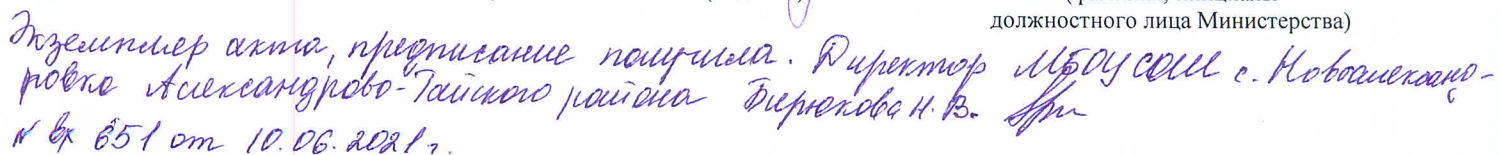 должностного лица Министерства)
Экземпляр акта, предписание получила. Директор МБОУ СОШ с. Новоалександ-
ровка Александрово-Гайского района Бирюкова Н.В.
№ вх 651 от 10.06.2021 г.